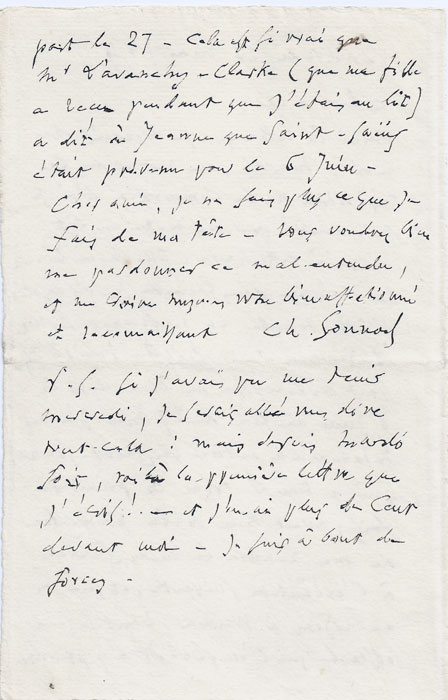 part le 27 - Cela est si vrai que
Mr Lavanchy-Clarke (que ma fille
a reçu pendant que j'étais au lit)
a dit à Jeanne que Saint-Saëns
était prévenu pour le 6 Juin -
Cher ami, je ne sais plus ce que je
fais de ma tête - Vous voudrez bien
me pardonner ce mal-entendu,
et me croire toujours votre bien affectionné
et reconnaissant Ch. Gounod
P.S. Si j'avais pu me tenir
mercredi, je serais allé vous dire
tout cela : mais depuis mardi
soir, voilà la première lettre que
j'écris! - et j'en ai plus de Cent
devant moi - Je suis à bout de
forces -